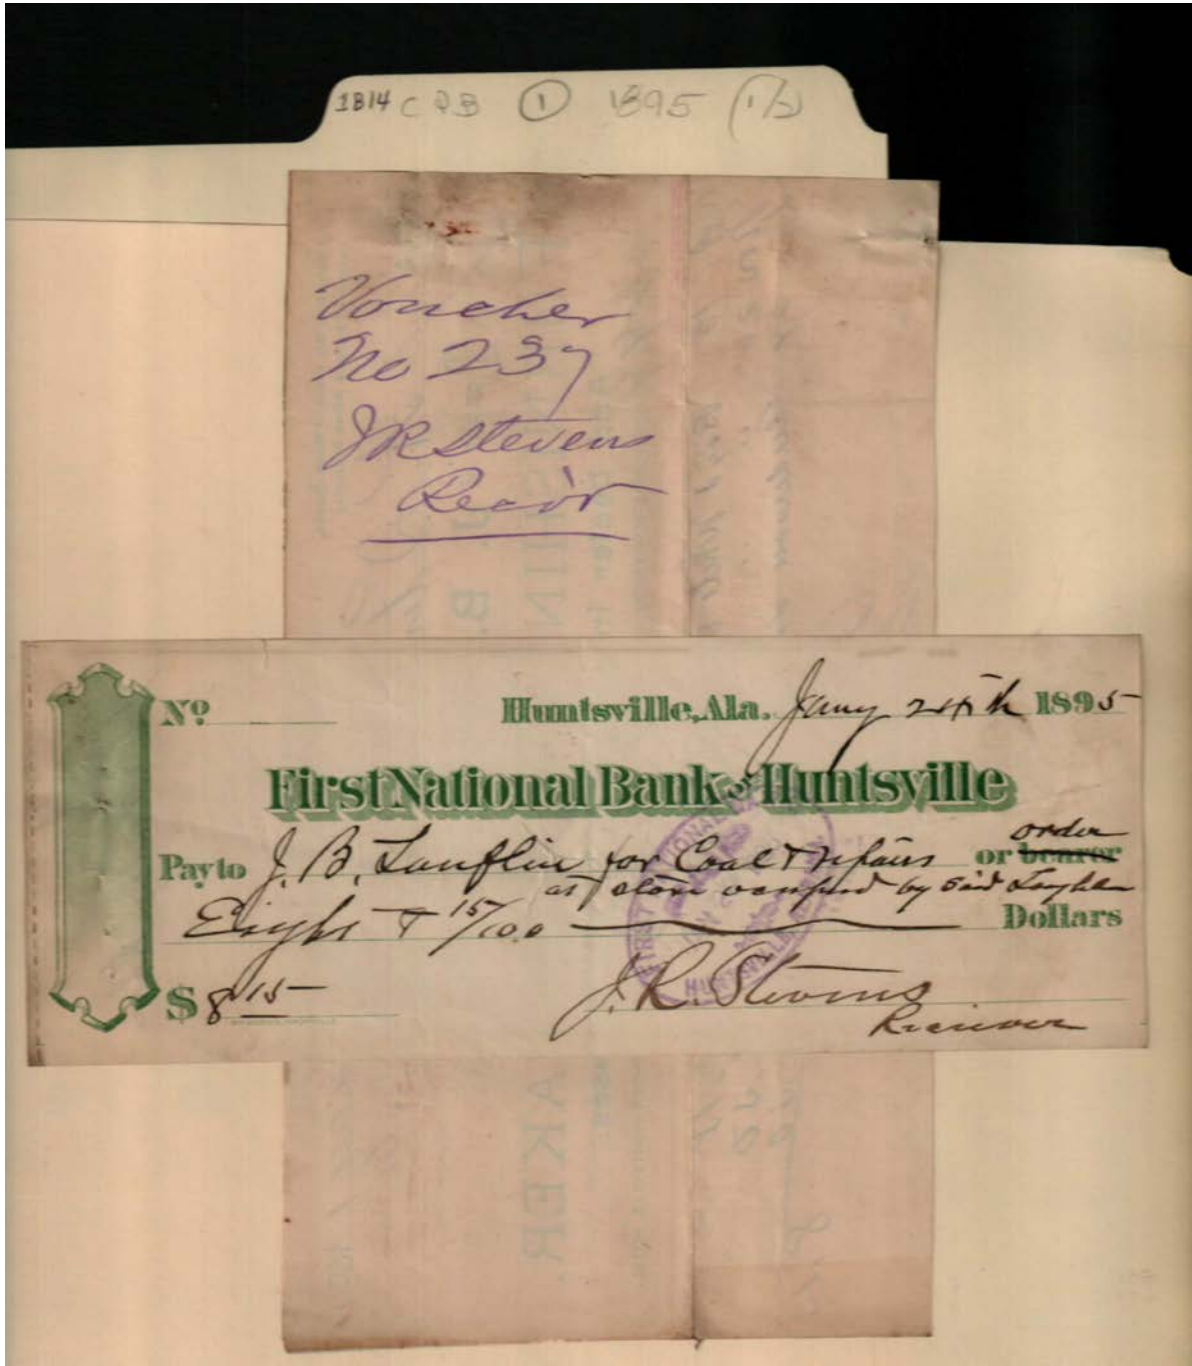 1814 C QB 1 1895 (1/2)
Voucher
No 237
JR Stevens
Receiver
No Huntsville, Ala. Jany 24th 1895
First National Bank of Huntsville
order
Pay to J. B. Lauflin for Coal & repairs or bearer
at store occupied by said Laughlin
Eight & 15/100 Dollars
$8 15
J. R. Stevens
Receiver
FIRST NATIONAL
HUNTSVILLE
AKER.